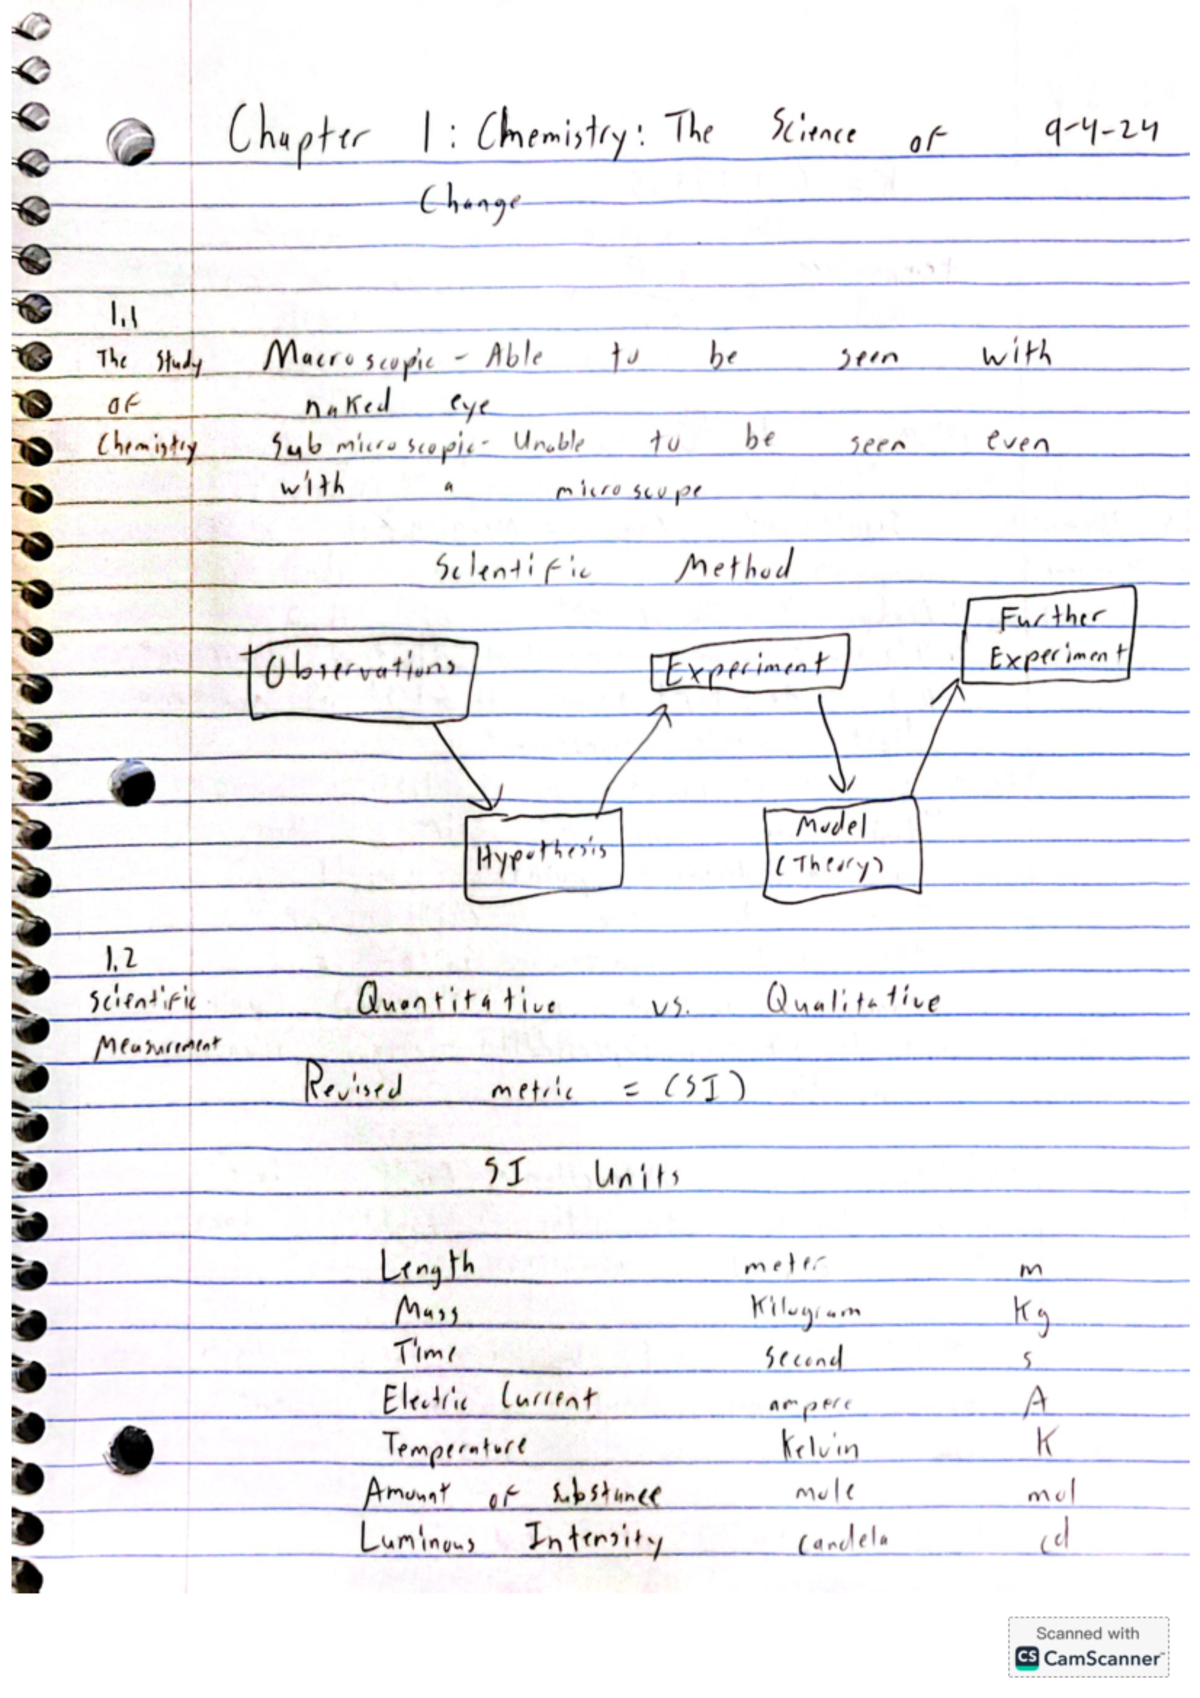 Chapter 1: Chemistry: The Science of 9-4-24
Change
1.1
The Study Macroscopic - Able to be seen with
of naked eye
Chemistry Submicroscopic - Unable to be seen even
with a microscope
Scientific Method
Further
Observations Experiment Experiment
Hypothesis Model
(Theory)
1.2
Scientific Quantitative vs. Qualitative
Measurement
Revised metric = (SI)
SI Units
Length meter m
Mass Kilogram Kg
Time second s
Electric Current ampere A
Temperature Kelvin K
Amount of substance mole mol
Luminous Intensity candela cd
Scanned with
CS CamScanner